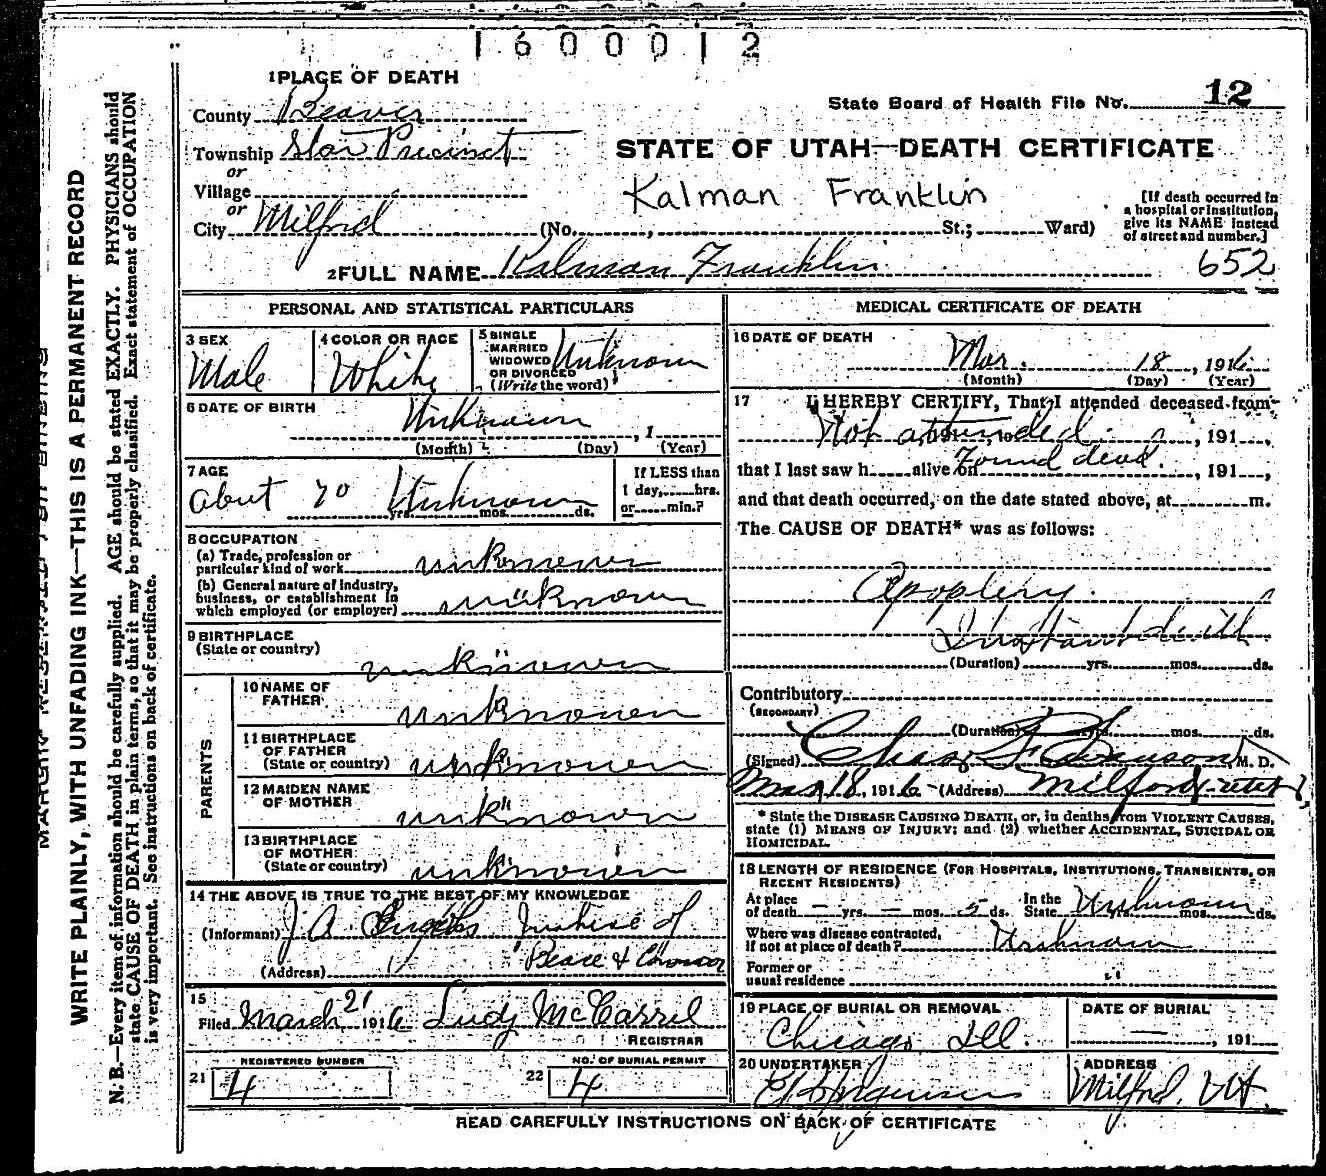 1600012
1 PLACE OF DEATH
County Beaver
State Board of Health File No. 12
Township Star Precinct
or
STATE OF UTAH—DEATH CERTIFICATE
Village
or
Kalman Franklin
City Milford (No. , St.; Ward)
[If death occurred in
a hospital or institution,
give its NAME instead
of street and number.]
2 FULL NAME Kalman Franklin
652
PERSONAL AND STATISTICAL PARTICULARS
3 SEX
Male
4 COLOR OR RACE
White
5 SINGLE
MARRIED
WIDOWED
OR DIVORCED
(Write the word)
Unknown
6 DATE OF BIRTH
Unknown
, 1
(Month) (Day) (Year)
7 AGE
about 70 Unknown
yrs. mos. ds.
If LESS than
1 day, hrs.
or min.?
8 OCCUPATION
(a) Trade, profession or
particular kind of work unknown
(b) General nature of industry,
business, or establishment in
which employed (or employer) unknown
9 BIRTHPLACE
(State or country)
unknown
PARENTS
10 NAME OF
FATHER
unknown
11 BIRTHPLACE
OF FATHER
(State or country) unknown
12 MAIDEN NAME
OF MOTHER
unknown
13 BIRTHPLACE
OF MOTHER
(State or country) unknown
14 THE ABOVE IS TRUE TO THE BEST OF MY KNOWLEDGE
(Informant) J A
of
(Address) Peace
15
Filed March 21 1916 McCarrel
REGISTRAR
REGISTERED NUMBER
21 4
NO. OF BURIAL PERMIT
22 4
MEDICAL CERTIFICATE OF DEATH
16 DATE OF DEATH
Mar. 18, 1916
(Month) (Day) (Year)
17 I HEREBY CERTIFY, That I attended deceased from
Not attended , 191 ,
that I last saw h alive on Found dead , 191 ,
and that death occurred, on the date stated above, at m.
The CAUSE OF DEATH* was as follows:
Apoplexy
Instant death
(Duration) yrs. mos. ds.
Contributory
(SECONDARY)
(Duration) yrs. mos. ds.
(Signed) Chas M. D.
Mar 18, 1916 (Address) Milford, Utah
* State the DISEASE CAUSING DEATH, or, in deaths from VIOLENT CAUSES,
state (1) MEANS OF INJURY; and (2) whether ACCIDENTAL, SUICIDAL OR
HOMICIDAL.
18 LENGTH OF RESIDENCE (FOR HOSPITALS, INSTITUTIONS, TRANSIENTS, OR
RECENT RESIDENTS)
At place
of death — yrs. — mos. 5 ds.
In the
State Unknown mos. ds.
Where was disease contracted,
if not at place of death? Unknown
Former or
usual residence "
19 PLACE OF BURIAL OR REMOVAL
Chicago Ill.
DATE OF BURIAL
— , 191
20 UNDERTAKER
ADDRESS
Milford, Ut.
READ CAREFULLY INSTRUCTIONS ON BACK OF CERTIFICATE
WRITE PLAINLY, WITH UNFADING INK—THIS IS A PERMANENT RECORD
N. B.—Every item of information should be carefully supplied. AGE should be stated EXACTLY. PHYSICIANS should
state CAUSE OF DEATH in plain terms, so that it may be properly classified. Exact statement of OCCUPATION
is very important. See instructions on back of certificate.